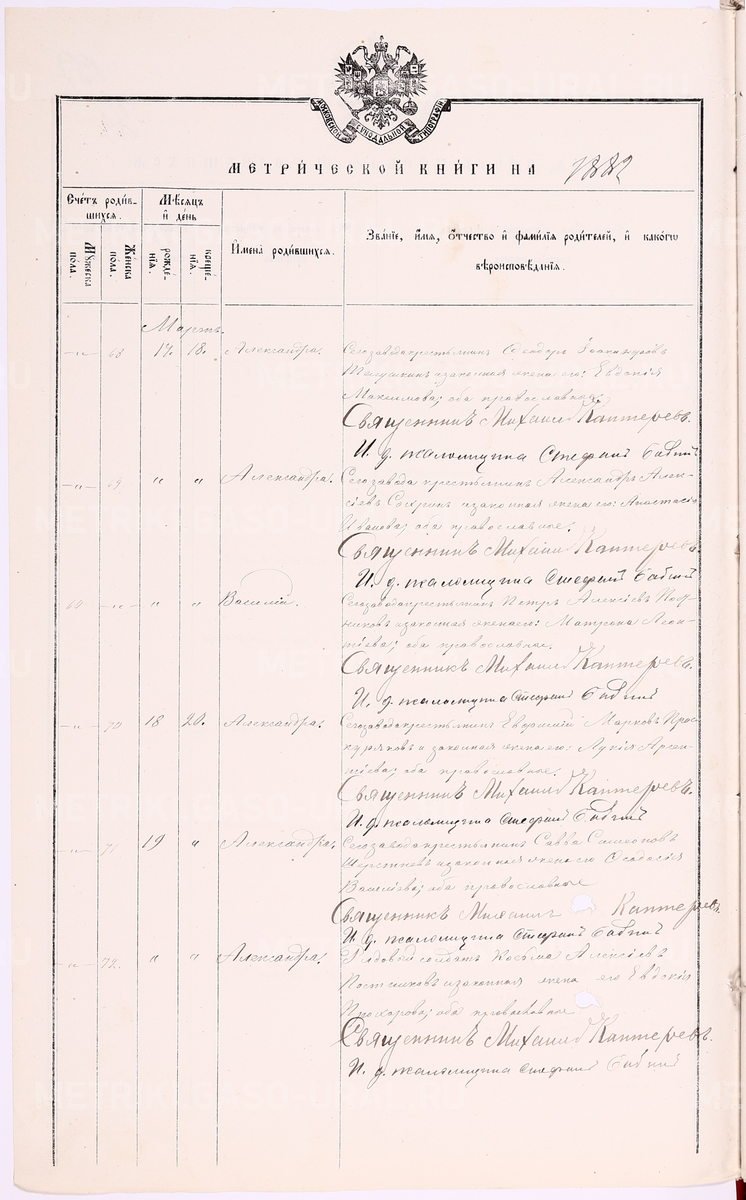 МОСКОВСКОЙ СУНОДАЛЬНОЙ ТИПОГРАФІИ
МЕТРИ́ЧЕСКОЙ КНИ́ГИ НА 1882
Сче́тъ роди́вшихсѧ.
Мѣ́сѧцъ и҆ де́нь
И҆мена̀ роди́вшихсѧ.
Зва́нїе, и҆́мѧ, ѻ҆́тчество и҆ фами́лїѧ роди́телей, и҆ како́гѡ вѣроисповѣ́данїѧ.
Мꙋ́жеска по́ла.
Же́нска по́ла.
рожде́нїѧ.
креще́нїѧ.
Мартъ.
-"- 68 17. 18. Александра.
Сегозавода крестьянинъ Ѳеодоръ
изаконная жена его: Евдокія
Максимова; оба православные.
Священникъ Михаилъ Каптеревъ.
И. д. псаломщика Стефанъ Бабинъ
-"- 69 " " Александра.
Сегозавода крестьянинъ Александръ Алек-
сіевъ изаконная жена его: Анастасія
Иванова; оба православные.
Священникъ Михаилъ Каптеревъ.
И. д. псаломщика Стефанъ Бабинъ
-"- " " Василій.
Сегозавода крестьянинъ Петръ Алексіевъ
изаконная жена его: Матрона Леон-
тіева; оба православные.
Священникъ Михаилъ Каптеревъ.
И. д. псаломщика Стефанъ Бабинъ
-"- 70 18 20. Александра.
Сегозавода крестьянинъ Евфимій Марковъ Прос-
куряковъ и законная жена его: Лукія Арсен-
тіева; оба православные.
Священникъ Михаилъ Каптеревъ.
И. д. псаломщика Стефанъ Бабинъ
-"- 71 19 " Александра.
Сегозавода крестьянинъ Савва Симеоновъ
изаконная жена его Ѳеодосія
Василіева; оба православные
Священникъ Михаилъ Каптеревъ
И. д. псаломщика Стефанъ Бабинъ
-"- 72. " " Александра.
Рядовый солдатъ Косьма Алексіевъ
Постниковъ изаконная жена его Евдокія
Прохорова; оба православные
Священникъ Михаилъ Каптеревъ.
И. д. псаломщика Стефанъ Бабинъ